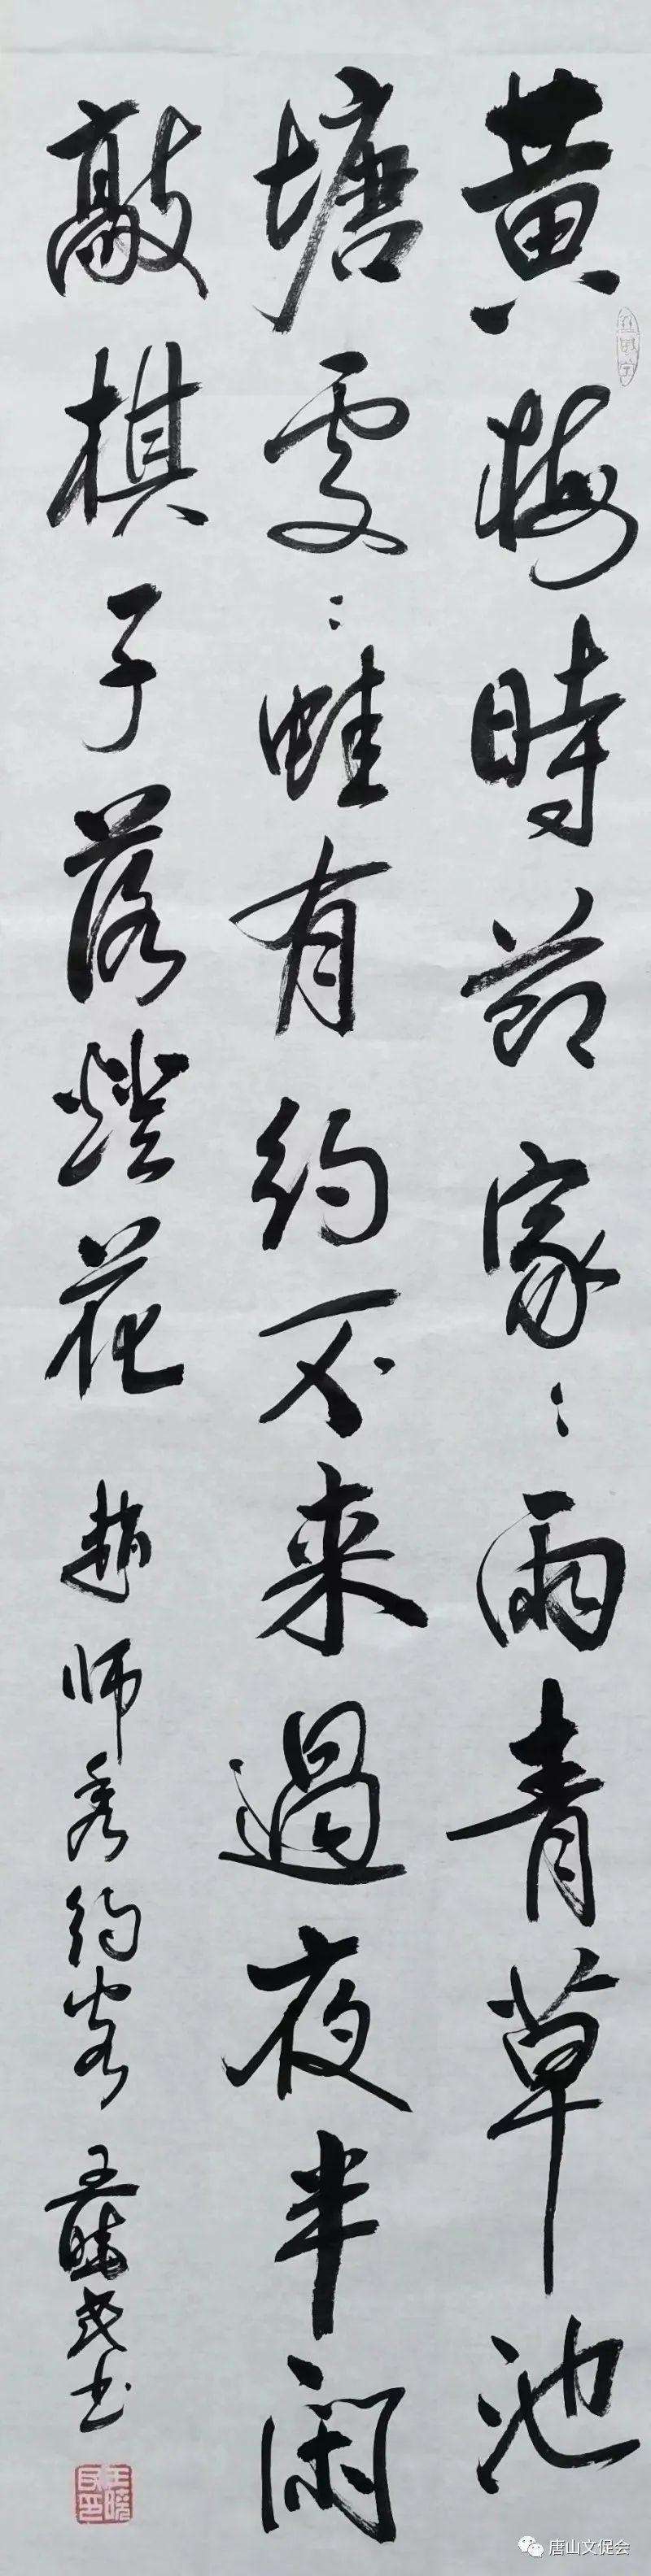 黄梅時節家〻雨青草池
塘處〻蛙有約不来過夜半闲
敲棋子落燈花 趙师秀約客 王曉民书
唐山文促会